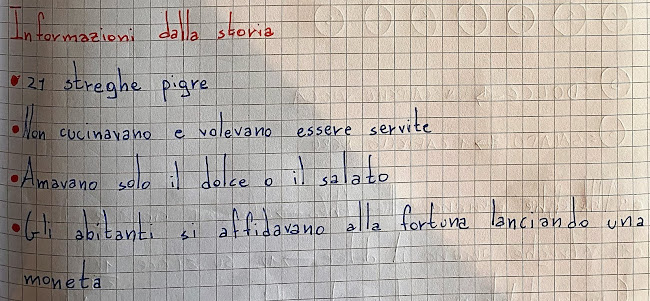 Informazioni dalla storia
• 21 streghe pigre
• Non cucinavano e volevano essere servite
• Amavano solo il dolce o il salato
• Gli abitanti si affidavano alla fortuna lanciando una
moneta